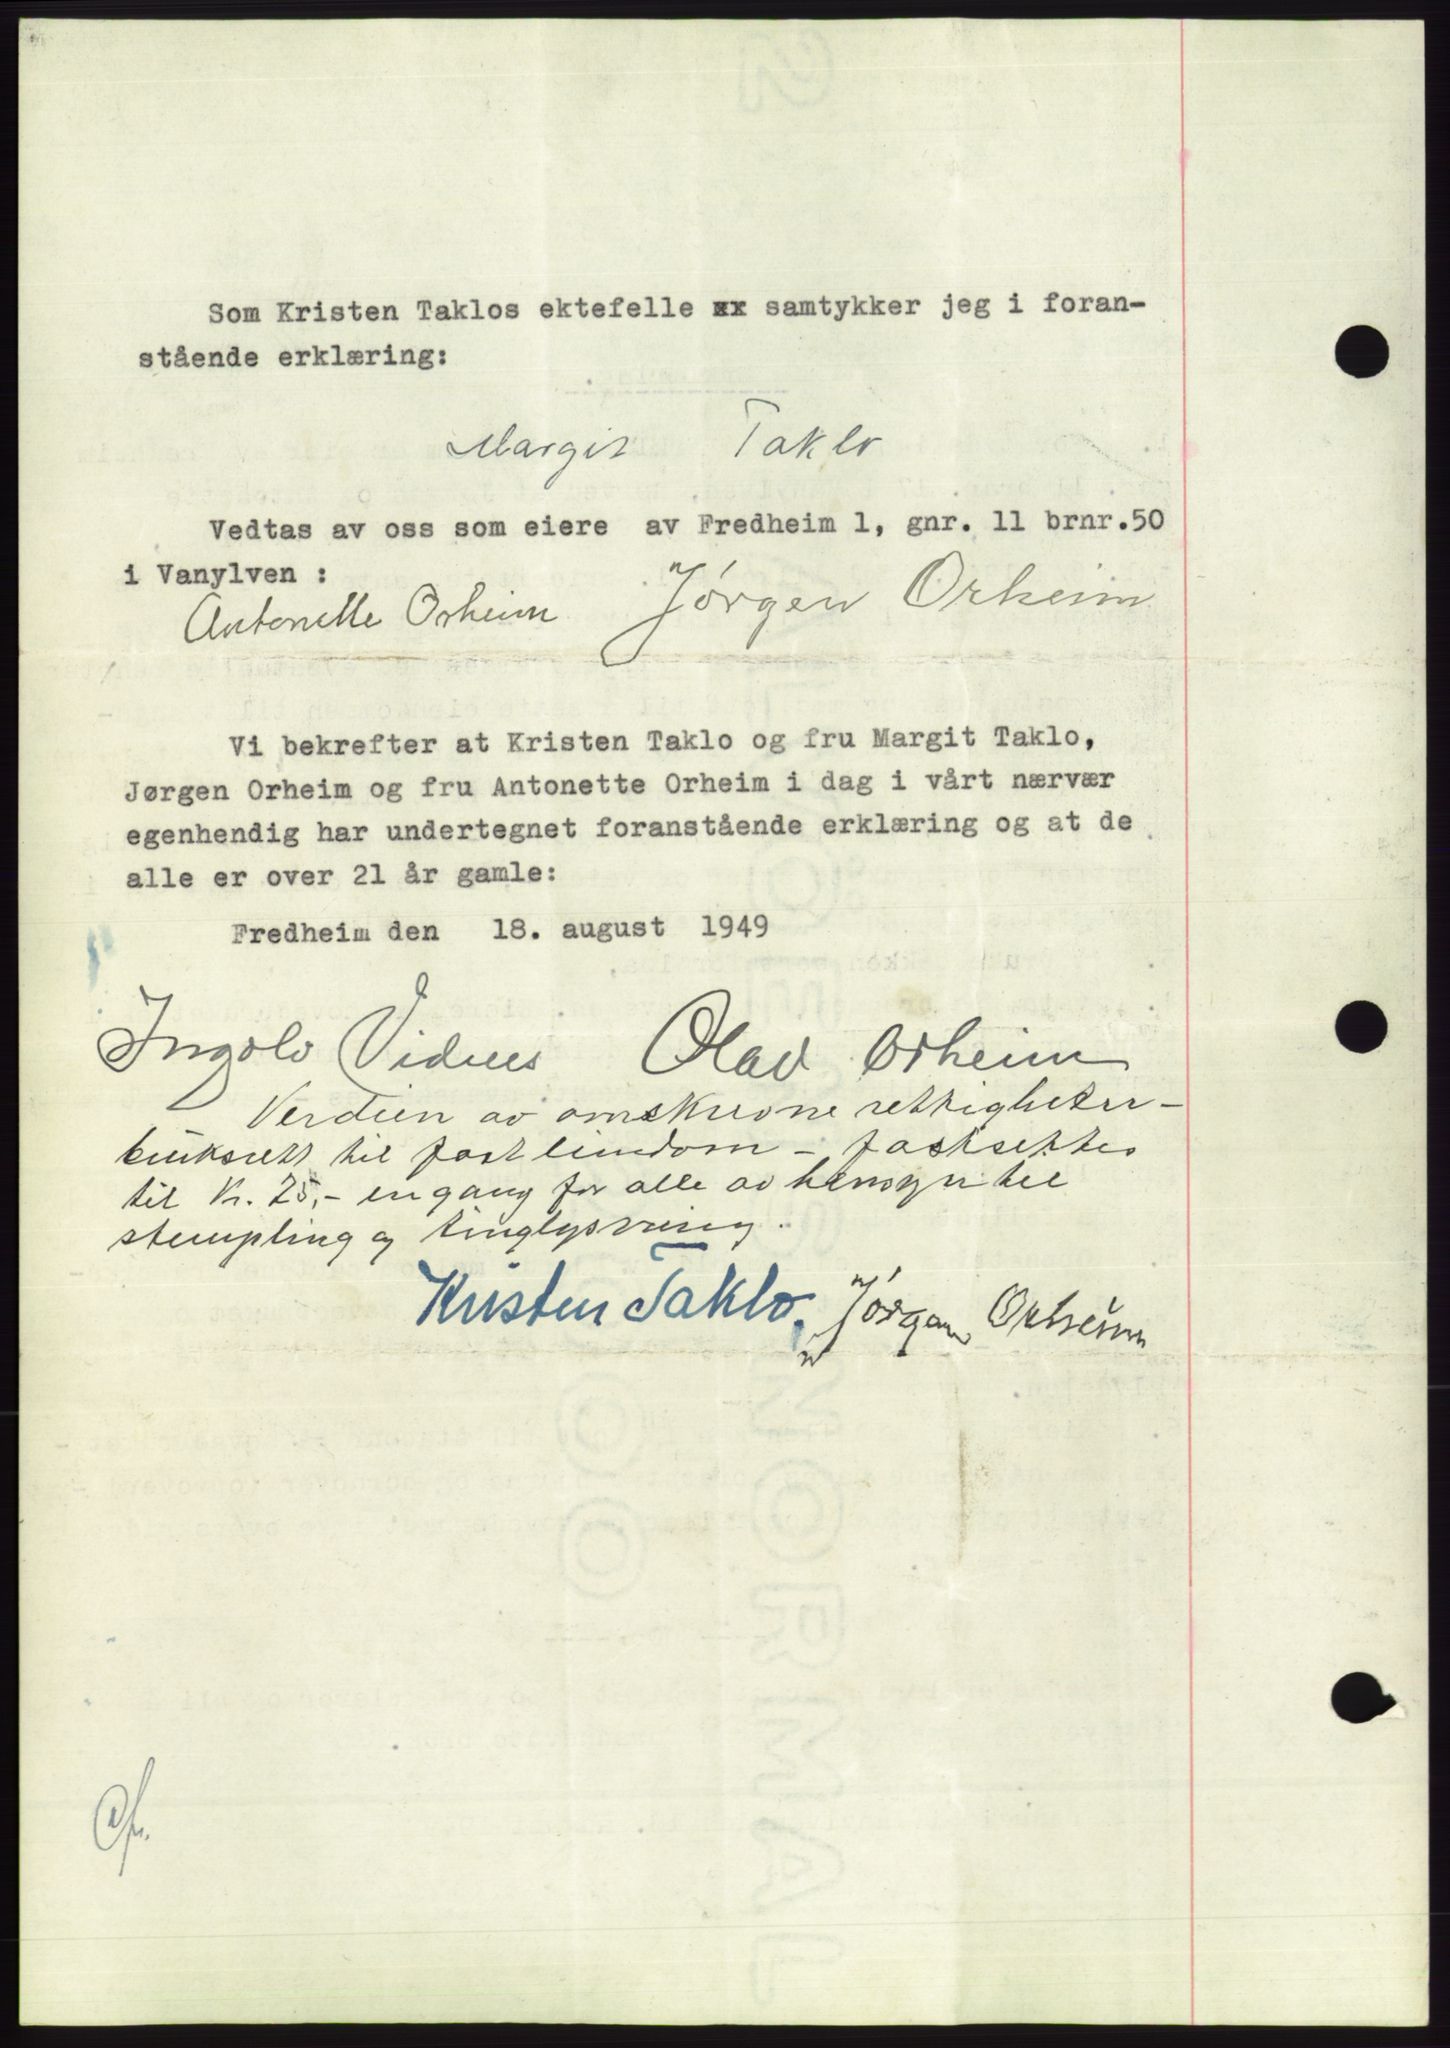 Som Kristen Taklos ektefelle xx samtykker jeg i foran-
stående erklæring:
Margit Taklo
Vedtas av oss som eiere av Fredheim 1, gnr. 11 brnr.50
i Vanylven :
Antonette Orheim Jørgen Orheim
Vi bekrefter at Kristen Taklo og fru Margit Taklo,
Jørgen Orheim og fru Antonette Orheim i dag i vårt nærvær
egenhendig har undertegnet foranstående erklæring og at de
alle er over 21 år gamle:
Fredheim den 18. august 1949
Ingolv Vidnes Olav Orheim
Verdien av omskrevne rettigheter -
bruksrett til fast eiendom - fastsettes
til Kr. 25,- en gang for alle av hensyn til
stempling og tinglysning.
Kristen Taklo, Jørgen Orheim